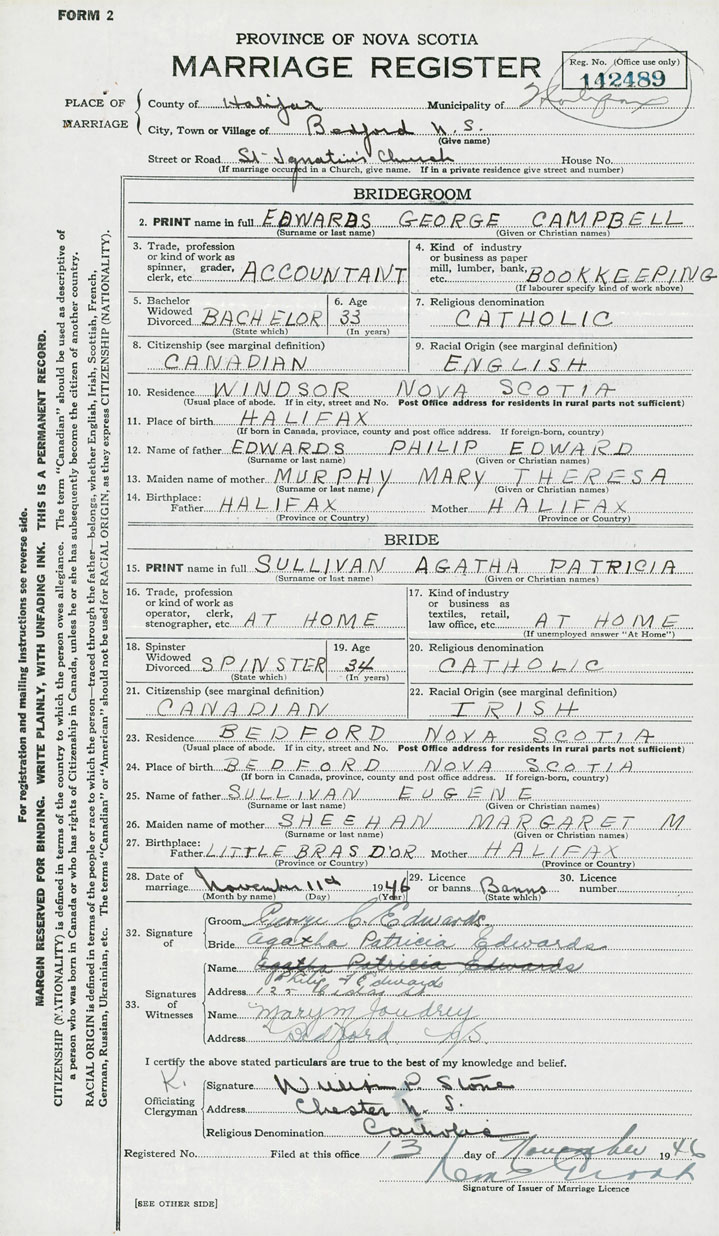 FORM 2
PROVINCE OF NOVA SCOTIA
MARRIAGE REGISTER
Reg. No. (Office use only)
142489
PLACE OF MARRIAGE
County of Halifax Municipality of Halifax
City, Town or Village of Bedford N.S.
(Give name)
Street or Road St Ignatius Church House No.
(If marriage occurred in a Church, give name. If in a private residence give street and number)
BRIDEGROOM
2. PRINT name in full EDWARDS GEORGE CAMPBELL
(Surname or last name) (Given or Christian names)
3. Trade, profession
or kind of work as
spinner, grader,
clerk, etc. ACCOUNTANT
4. Kind of industry
or business as paper
mill, lumber, bank,
etc. BOOKKEEPING
(If labourer specify kind of work above)
5. Bachelor
Widowed
Divorced BACHELOR
(State which)
6. Age
33
(In years)
7. Religious denomination
CATHOLIC
8. Citizenship (see marginal definition)
CANADIAN
9. Racial Origin (see marginal definition)
ENGLISH
10. Residence WINDSOR NOVA SCOTIA
(Usual place of abode. If in city, street and No. Post Office address for residents in rural parts not sufficient)
11. Place of birth HALIFAX
(If born in Canada, province, county and post office address. If foreign-born, country)
12. Name of father EDWARDS PHILIP EDWARD
(Surname or last name) (Given or Christian names)
13. Maiden name of mother MURPHY MARY THERESA
(Surname or last name) (Given or Christian names)
14. Birthplace:
Father HALIFAX Mother HALIFAX
(Province or Country) (Province or Country)
BRIDE
15. PRINT name in full SULLIVAN AGATHA PATRICIA
(Surname or last name) (Given or Christian names)
16. Trade, profession
or kind of work as
operator, clerk,
stenographer, etc. AT HOME
17. Kind of industry
or business as
textiles, retail,
law office, etc. AT HOME
(If unemployed answer "At Home")
18. Spinster
Widowed
Divorced SPINSTER
(State which)
19. Age
34
(In years)
20. Religious denomination
CATHOLIC
21. Citizenship (see marginal definition)
CANADIAN
22. Racial Origin (see marginal definition)
IRISH
23. Residence BEDFORD NOVA SCOTIA
(Usual place of abode. If in city, street and No. Post Office address for residents in rural parts not sufficient)
24. Place of birth BEDFORD NOVA SCOTIA
(If born in Canada, province, county and post office address. If foreign-born, country)
25. Name of father SULLIVAN EUGENE
(Surname or last name) (Given or Christian names)
26. Maiden name of mother SHEEHAN MARGARET M
(Surname or last name) (Given or Christian names)
27. Birthplace:
Father LITTLE BRAS D'OR Mother HALIFAX
(Province or Country) (Province or Country)
28. Date of
marriage November 11th 1946
(Month by name) (Day) (Year)
29. Licence
or banns Banns
(State which)
30. Licence
number
32. Signature
of
Groom George C. Edwards
Bride Agatha Patricia Edwards
33. Signatures
of
Witnesses
Name Agatha Patricia Edwards
Philip F Edwards
Address 122 St
Name Mary M Joudrey
Address Bedford NS
I certify the above stated particulars are true to the best of my knowledge and belief.
Officiating
Clergyman
Signature William P. Stone
Address Chester N.S.
Religious Denomination Catholic
Registered No. Filed at this office 13 day of November 1946
Signature of Issuer of Marriage Licence
[SEE OTHER SIDE]
For registration and mailing instructions see reverse side.
MARGIN RESERVED FOR BINDING. WRITE PLAINLY, WITH UNFADING INK. THIS IS A PERMANENT RECORD.
CITIZENSHIP (NATIONALITY) is defined in terms of the country to which the person owes allegiance. The term "Canadian" should be used as descriptive of
a person who was born in Canada or who has rights of Citizenship in Canada, unless he or she has subsequently become the citizen of another country.
RACIAL ORIGIN is defined in terms of the people or race to which the person—traced through the father—belongs, whether English, Irish, Scottish, French,
German, Russian, Ukrainian, etc. The terms "Canadian" or "American" should not be used for RACIAL ORIGIN, as they express CITIZENSHIP (NATIONALITY).